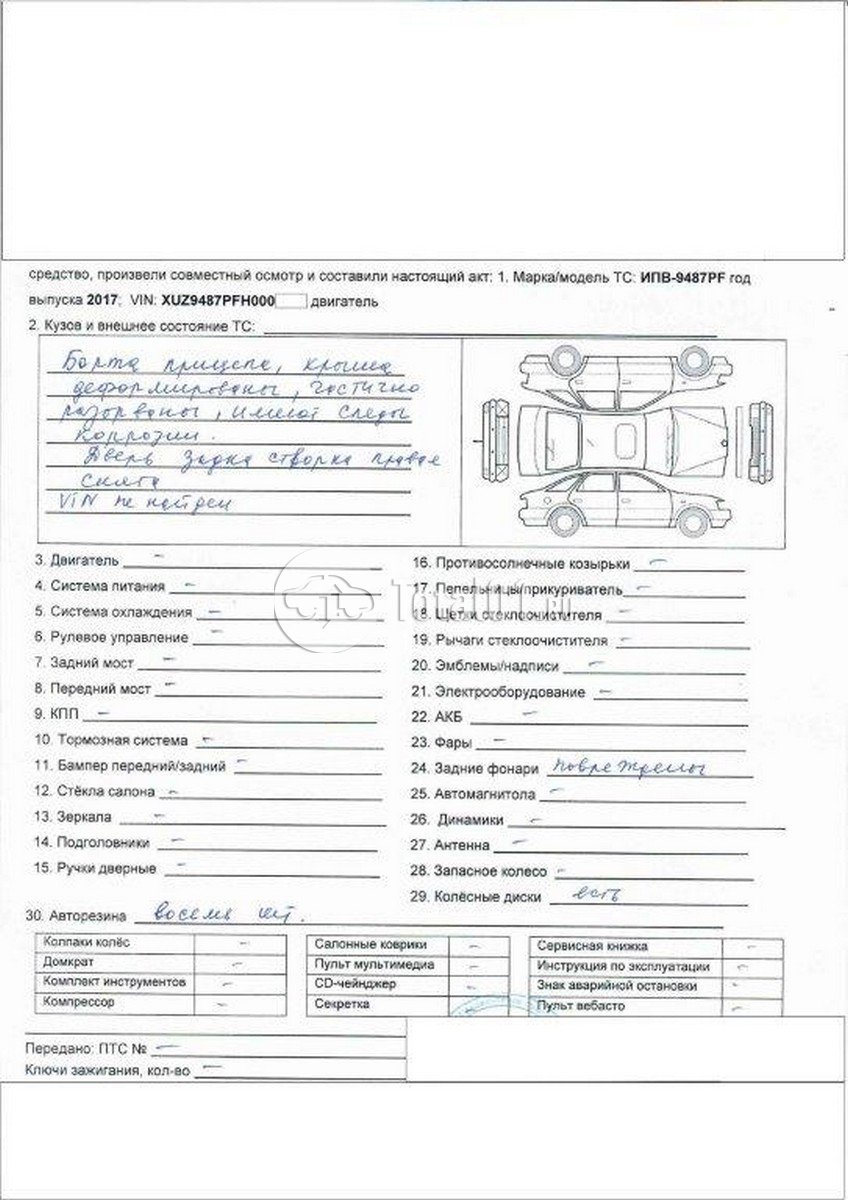 средство, произвели совместный осмотр и составили настоящий акт: 1. Марка/модель ТС: ИПВ-9487PF год
выпуска 2017; VIN: XUZ9487PFH000 двигатель
2. Кузов и внешнее состояние ТС:
Борта прицепа, крыша
деформированы, частично
разорваны, имеют следы
коррозии.
Дверь задка створка правая
снята
VIN не найден
3. Двигатель –
4. Система питания –
5. Система охлаждения –
6. Рулевое управление –
7. Задний мост –
8. Передний мост –
9. КПП –
10. Тормозная система –
11. Бампер передний/задний –
12. Стёкла салона –
13. Зеркала –
14. Подголовники –
15. Ручки дверные –
16. Противосолнечные козырьки –
17. Пепельницы/прикуриватель –
18. Щетки стеклоочистителя –
19. Рычаги стеклоочистителя –
20. Эмблемы/надписи –
21. Электрооборудование –
22. АКБ –
23. Фары –
24. Задние фонари повреждены
25. Автомагнитола –
26. Динамики –
27. Антенна –
28. Запасное колесо –
29. Колёсные диски есть
30. Авторезина восемь шт.
Колпаки колёс –
Домкрат –
Комплект инструментов –
Компрессор –
Салонные коврики –
Пульт мультимедиа –
CD-чейнджер –
Секретка –
Сервисная книжка –
Инструкция по эксплуатации –
Знак аварийной остановки –
Пульт вебасто –
Передано: ПТС № –
Ключи зажигания, кол-во –
Total01.RU